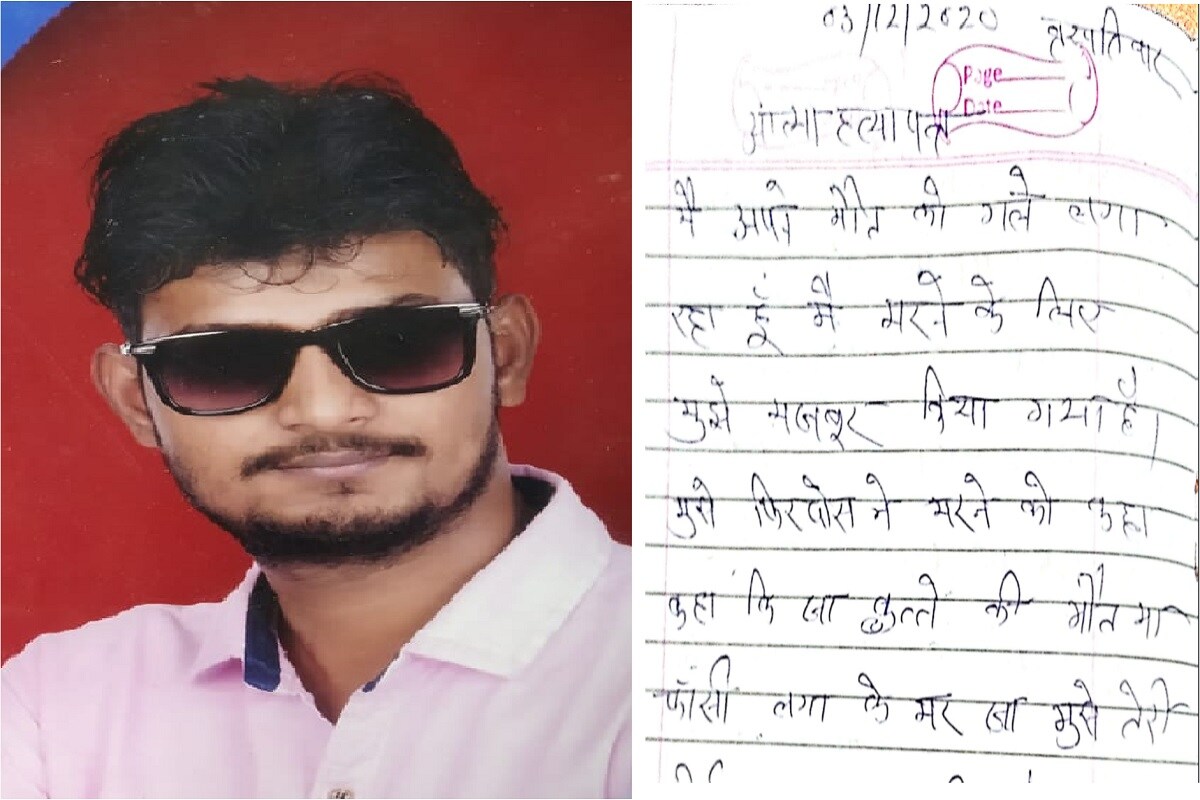 03/12/2020 ब्रस्पतिवार
Page
Date
आत्मा हत्या पत्र
मै अपने मौत को गले लगा
रहा हूं मै मरने के लिए
मुझे मजबूर किया गया है।
मुझे फिरदोस ने मरने को कहा
कहा कि जा कुत्ते की मौत मा
फांसी लगा के मर जा मुझे तेरी